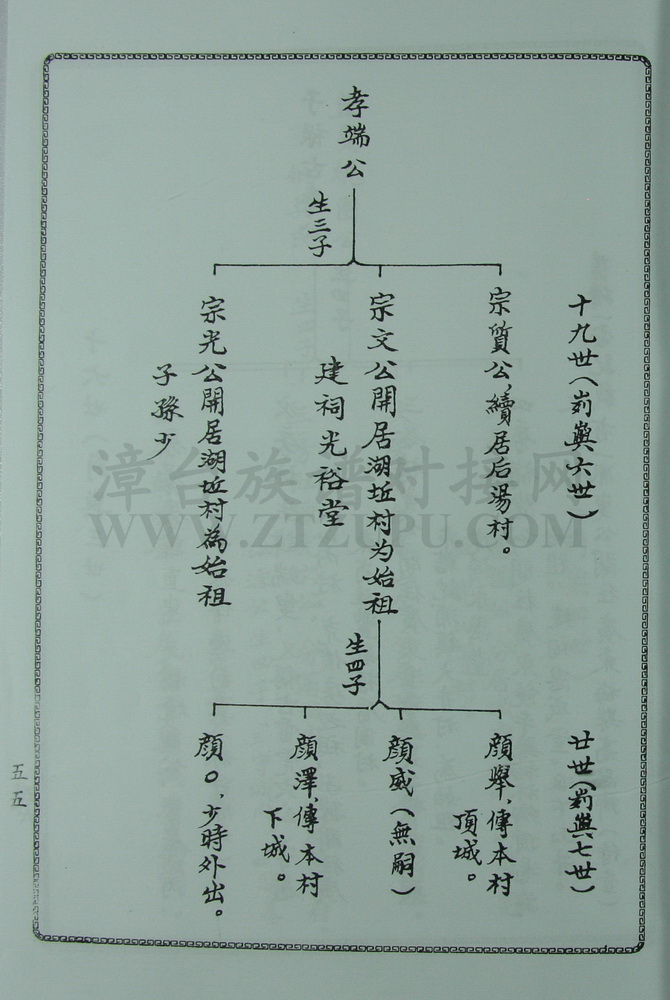 孝端公
生三子
十九世（前與六世）
宗質公，續居后湯村。
宗文公開居湖坵村为始祖
建祠光裕堂
宗光公開居湖坵村為始祖
子孫少
生四子
廿世（前與七世）
顔舉，傳本村
頂城。
顔威（無嗣）
顔澤，傳本村
下城。
顔〇，少時外出。
五五
漳台族谱对接网
WWW.ZTZUPU.COM